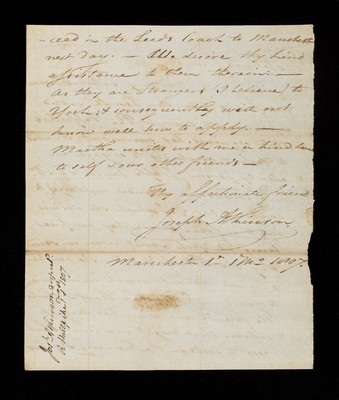 -ceed in the Leeds Coach to Manchester
next Day. — Also desire thy kind
assistance to them therein —
as they are Strangers (I believe) to
York, & consequently will not
know well how to apply. —
Martha unites with me in kind love
to self & our other friends —
Thy affectionate friend
Joseph Atkinson
Manchester 1st 1 Mo 1807.